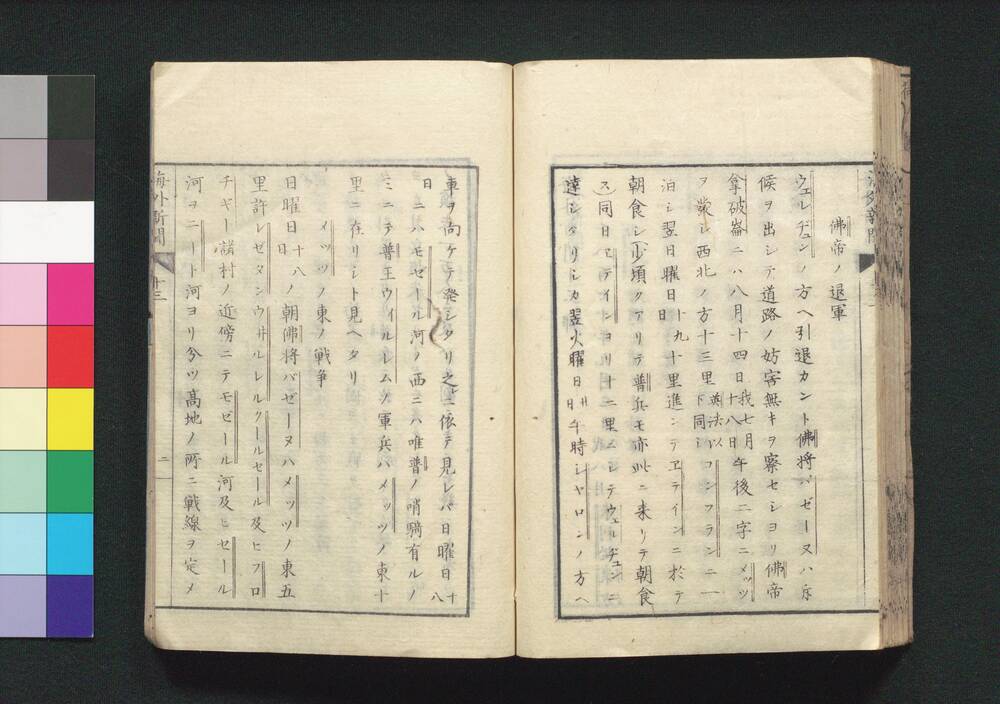 佛帝ノ退軍
ウェルヂュンノ方ヘ引退カント佛將バゼーヌハ斥
候ヲ出シテ道路ノ妨害無キヲ察セショリ佛帝
拿破崙ニハ八月十四日我七月十八日午後二字ニメッツ
ヲ發シ西北ノ方十三里普法以下同シコンフランニ一
泊シ翌日曜日十九日十里進ンテヱテインニ於テ
朝食シ少頃クアリテ普兵モ亦此ニ來リテ朝食
ス同日ヱテインヨリ十二里ニシテウェルヂュンニ
達シタリシカ翌火曜日廿日午時シヤロンノ方ヘ
車ヲ向ケテ發シタリ之ニ依テ見レバ日曜日十八
日ニハモゼール河ノ西ニハ唯普ノ哨騎有ルノ
ミニテ普王ウイルレムノ軍兵ハメッツノ東十
里ニ在リシト見ヘタリ
メッツノ東ノ戰爭
日曜日十八日ノ朝佛將バゼーヌハメッツノ東五
里許レゼタンウ井ルレルクールセール及ヒフロ
チギー諸村ノ近傍ニテモゼール河及ヒセール
河ヲニート河ヨリ分ツ高地ノ所ニ戰線ヲ定メ
海外新聞 十三 二